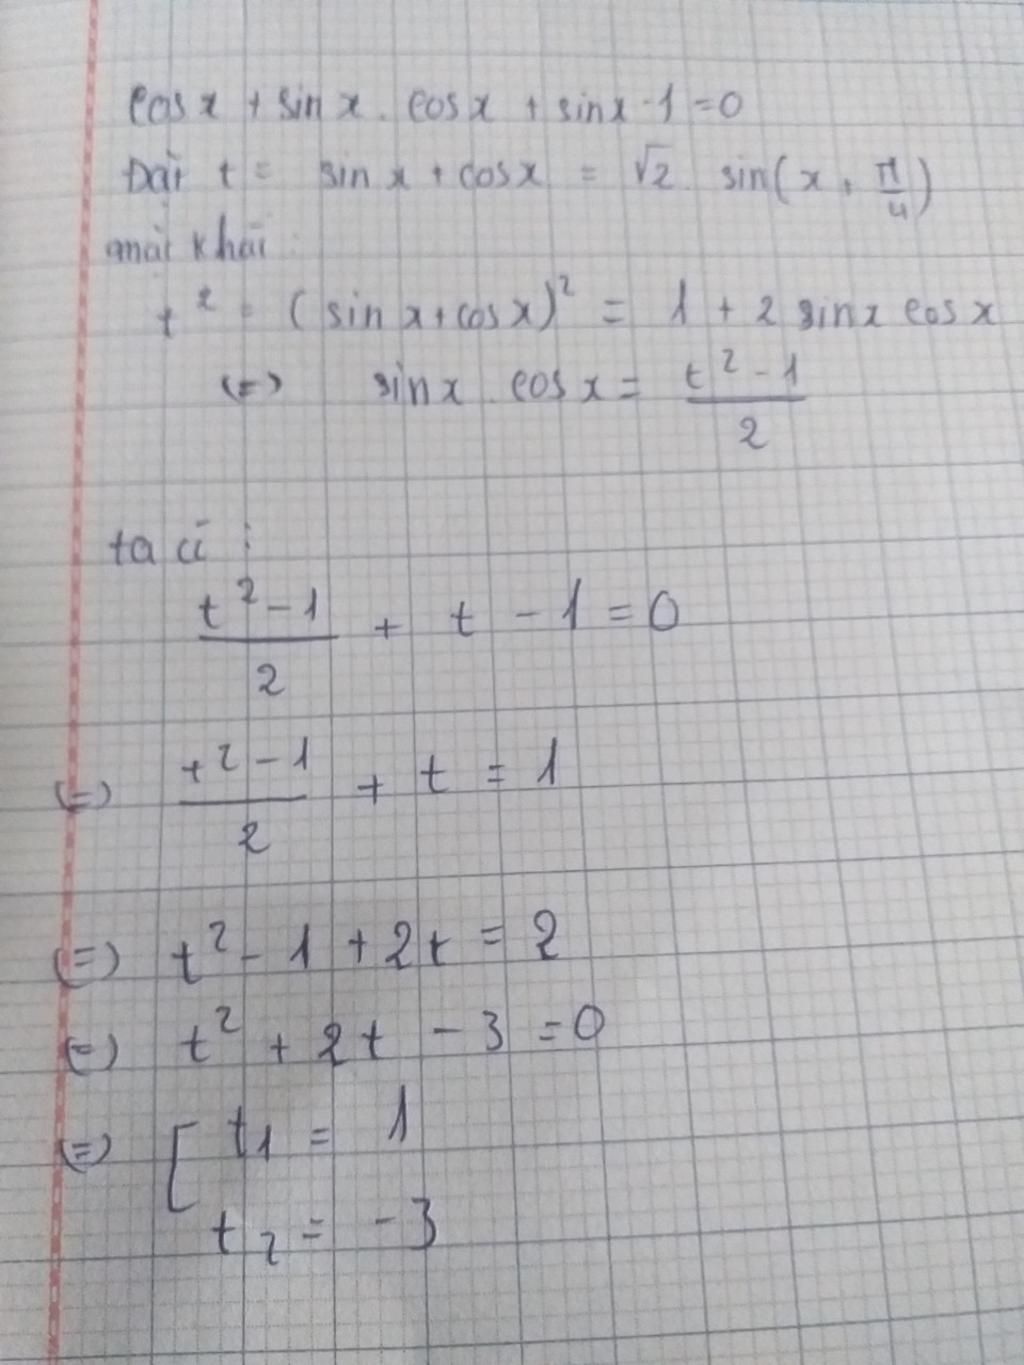 cos x + sin x . cos x + sin x - 1 = 0
Đặt t = sin x + cos x = √2 . sin(x + π/4)
mặt khác :
t² = (sin x + cos x)² = 1 + 2 sin x cos x
(=) sin x . cos x = (t² - 1)/2
ta có :
(t² - 1)/2 + t - 1 = 0
(=) (t² - 1)/2 + t = 1
(=) t² - 1 + 2t = 2
(=) t² + 2t - 3 = 0
(=) [ t₁ = 1
t₂ = -3